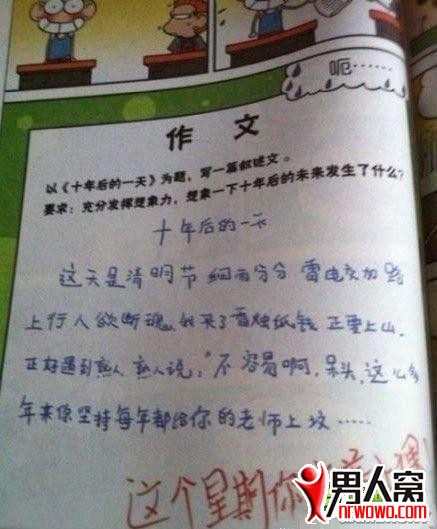 呃……
作 文
以《十年后的一天》为题，写一篇叙述文。
要求：充分发挥想象力，想象一下十年后的未来发生了什么？
十年后的一天
这天是清明节 细雨分分 雷电交加 路
上行人欲断魂，我买了香烛纸钱 正要上山，
正好遇到熟人，熟人说：“不容易啊，呆头，这么多
年来你坚持每年都给你的老师上坟……
这个星期你
男人窝
nrwowo.com